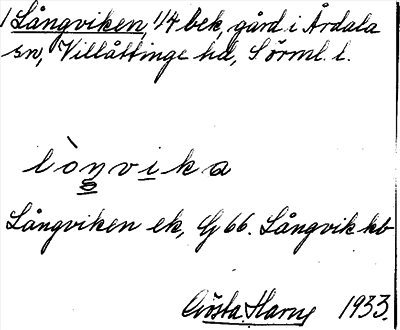 1 Långviken, 1/4 bek, gård i Årdala
sn, Villåttinge hd, Sörml. l.
lòŋvika
Långviken ek, G 66. Långvik kb
Gösta Harne 1933.